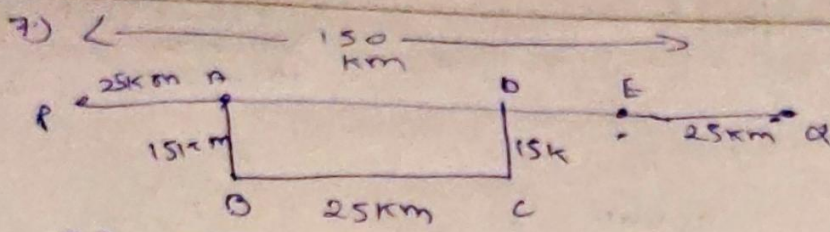 7) 150
km
25km A D E
P 15km 15k 25km Q
B 25km C